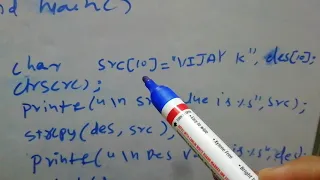 id main()
char src[10]="VIJAY K", des[10];
clrscr();
printf("\n src value is %s", src);
strcpy(des, src);
printf("\n Des val is %s", des)